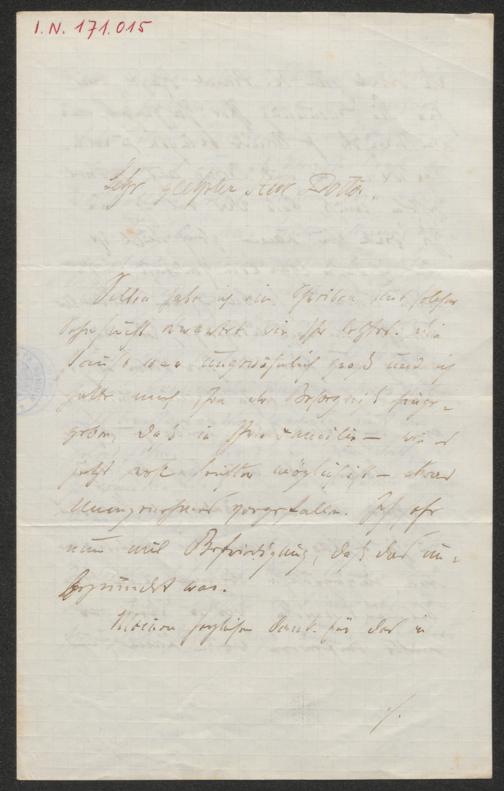 I.N. 171.015
Sehr geehrter Herr Doktor.
Selten habe ich ein Schreiben mit solcher
Sehnsucht erwartet wie Ihr letztes. Die
Pause war ungewöhnlich groß und ich
hatte mich schon der Besorgniß hinge-
geben, daß in Ihrer Familie – wie
jetzt nur leicht möglich ist – etwas
Unangenehmes vorgefallen. Ich sehe
nun mit Befriedigung, daß das un-
begründet war.
Meinen herzlichen Dank für das in
./.